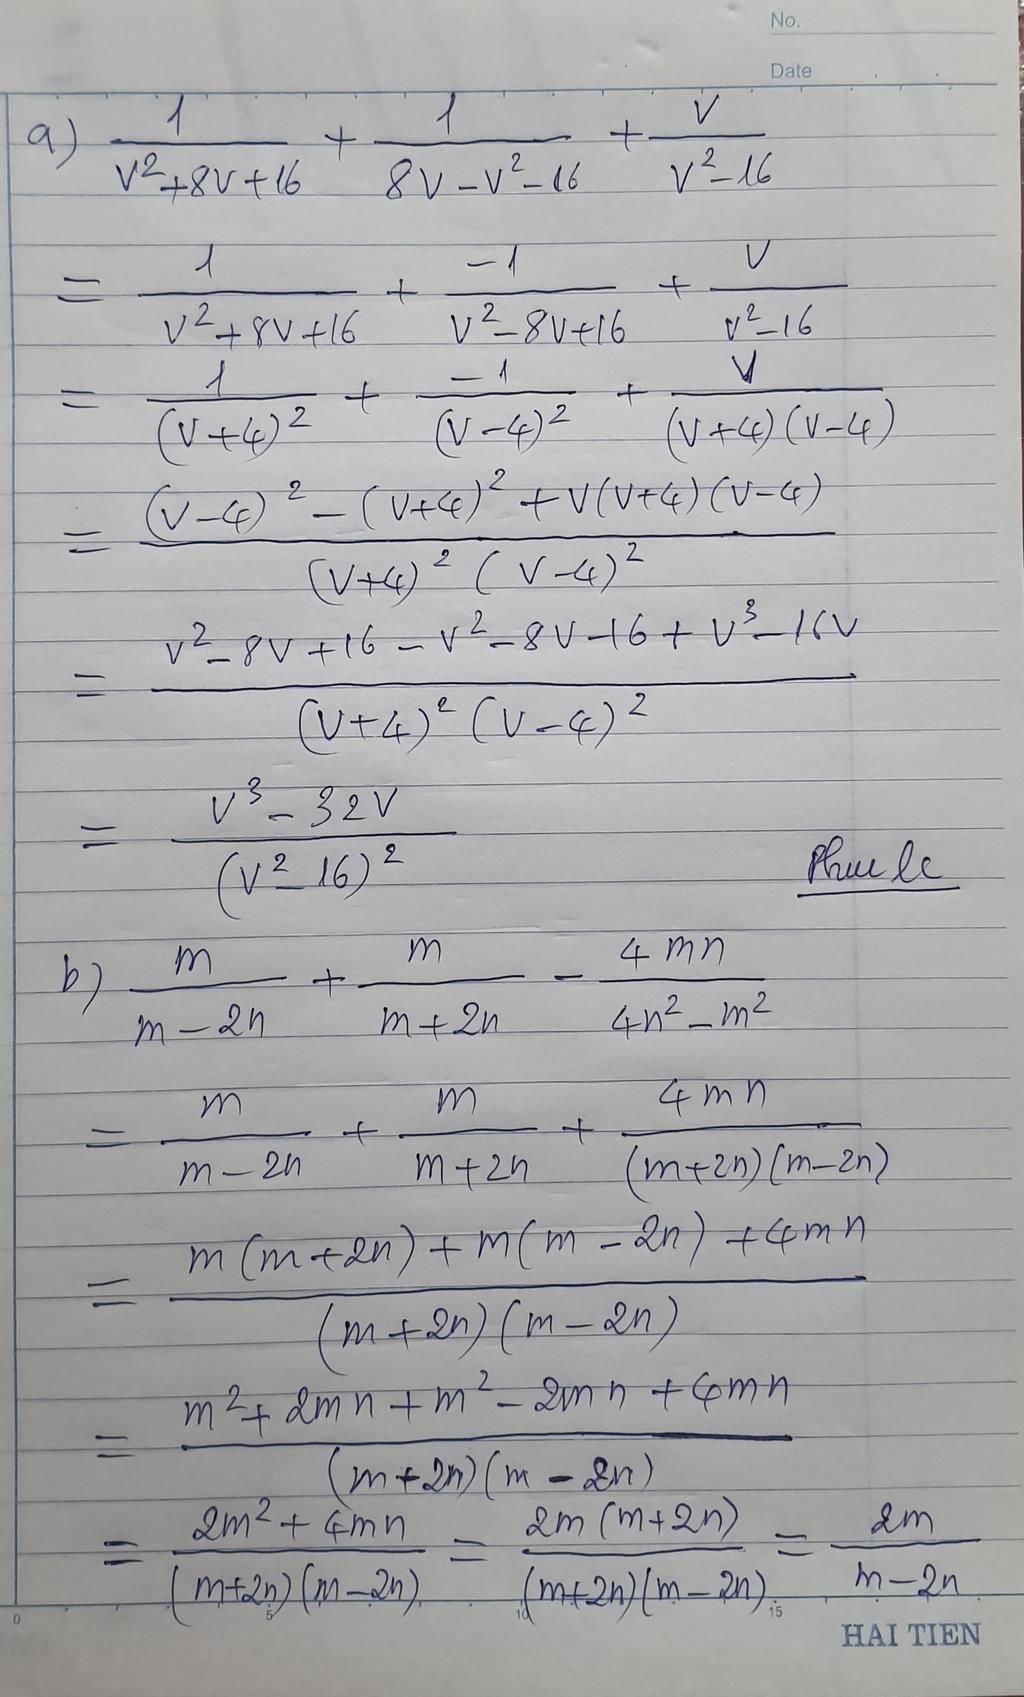 No.
Date
a) 1/(v²+8v+16) + 1/(8v-v²-16) + v/(v²-16)
= 1/(v²+8v+16) + -1/(v²-8v+16) + v/(v²-16)
= 1/(v+4)² + -1/(v-4)² + v/((v+4)(v-4))
= ((v-4)² - (v+4)² + v(v+4)(v-4))/((v+4)²(v-4)²)
= (v²-8v+16-v²-8v-16+v³-16v)/((v+4)²(v-4)²)
= (v³-32v)/(v²-16)²
Phuc le
b) m/(m-2n) + m/(m+2n) - 4mn/(4n²-m²)
= m/(m-2n) + m/(m+2n) + 4mn/((m+2n)(m-2n))
= (m(m+2n)+m(m-2n)+4mn)/((m+2n)(m-2n))
= (m²+2mn+m²-2mn+4mn)/((m+2n)(m-2n))
= (2m²+4mn)/((m+2n)(m-2n)) = 2m(m+2n)/((m+2n)(m-2n)) = 2m/(m-2n)
0 5 10 15
HAI TIEN